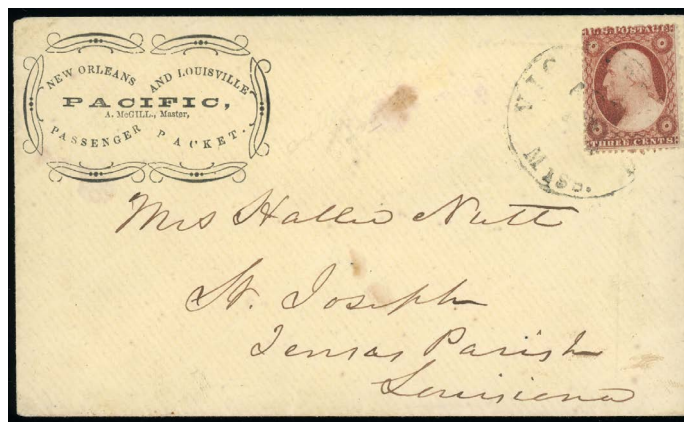 NEW ORLEANS AND LOUISVILLE
PACIFIC,
A. McGILL., Master,
PASSENGER PACKET.
U.S. POSTAGE
THREE CENTS
MISS.
Mrs Hallie Nutt
St. Joseph
Tensas Parish
Louisiana